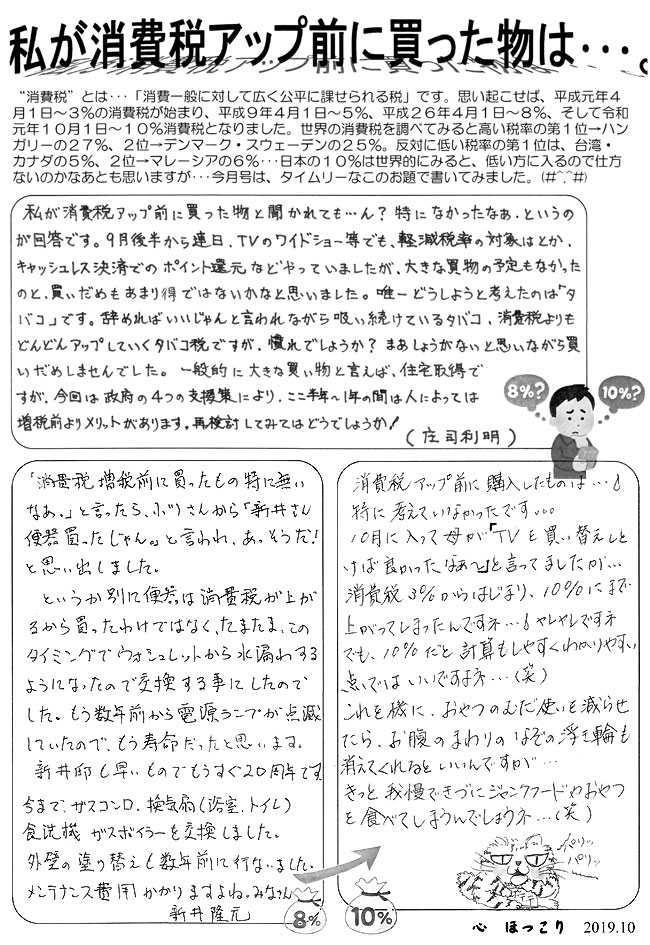 私が消費税アップ前に買った物は・・・。
“消費税”とは・・・「消費一般に対して広く公平に課せられる税」です。思い起こせば、平成元年4
月1日～3%の消費税が始まり、平成9年4月1日～5%、平成26年4月1日～8%、そして令和
元年10月1日～10%消費税となりました。世界の消費税を調べてみると高い税率の第1位→ハン
ガリーの27%、2位→デンマーク・スウェーデンの25%。反対に低い税率の第1位は、台湾・
カナダの5%、2位→マレーシアの6%・・・日本の10%は世界的にみると、低い方に入るので仕方
ないのかなあとも思いますが・・・今月号は、タイムリーなこのお題で書いてみました。(#^.^#)
私が消費税アップ前に買った物と聞かれても…ん？特になかったなぁ.というの
が回答です。9月後半から連日、TVのワイドショー等でも、軽減税率の対象はとか、
キャッシュレス決済でのポイント還元などやっていましたが、大きな買物の予定もなかった
のと、買いだめもあまり得ではないかなと思いました。唯一どうしようと考えたのは「タ
バコ」です。辞めればいいじゃんと言われながら吸い続けているタバコ、消費税よりも
どんどんアップしていくタバコ税ですが、慣れでしょうか？まあしょうがないと思いながら買
いだめしませんでした。一般的に大きな買い物と言えば、住宅取得で
すが、今回は政府の4つの支援策により、ここ半年～1年の間は人によっては
増税前よりメリットがあります。再検討してみてはどうでしょうか！
(庄司利明)
8%?
10%?
「消費税増税前に買ったもの特に無い
なあ。」と言ったら、ぶりさんから「新井さん
便器買ったじゃん。」と言われ、あっそうだ！
と思い出しました。
というか別に便器は消費税が上が
るから買ったわけではなく、たまたま、この
タイミングでウォシュレットから水漏れする
ようになったので交換する事にしたので
した。もう数年前から電源ランプが点滅
していたので、もう寿命だったと思います。
新井邸も早いものでもうすぐ20周年です
今まで、ガスコンロ、換気扇(浴室、トイレ)
食洗機 ガスボイラーを交換しました。
外壁の塗り替えも数年前に行ないました。
メンテナンス費用かかりますよね。みなさん
新井隆元
8%
消費税アップ前に購入したものは…！
特に考えていなかったです…
10月に入って母が「TVを買い替えしと
けば良かったなぁ～」と言ってましたが…
消費税3%からはじまり、10%にまで
上がってしまったんですネ…！ヤレヤレですネ
でも、10%だと計算もしやすくわかりやすい
点ではいいですよネ…(笑)
これを機に、おやつのむだ使いを減らせ
たら、お腹のまわりのなぞの浮き輪も
消えてくれるといいんですが…
きっと我慢できずにジャンクフードやおやつ
を食べてしまうんでしょうネ…(笑)
パリッ
パリッ
10%
心 ほっこり 2019.10